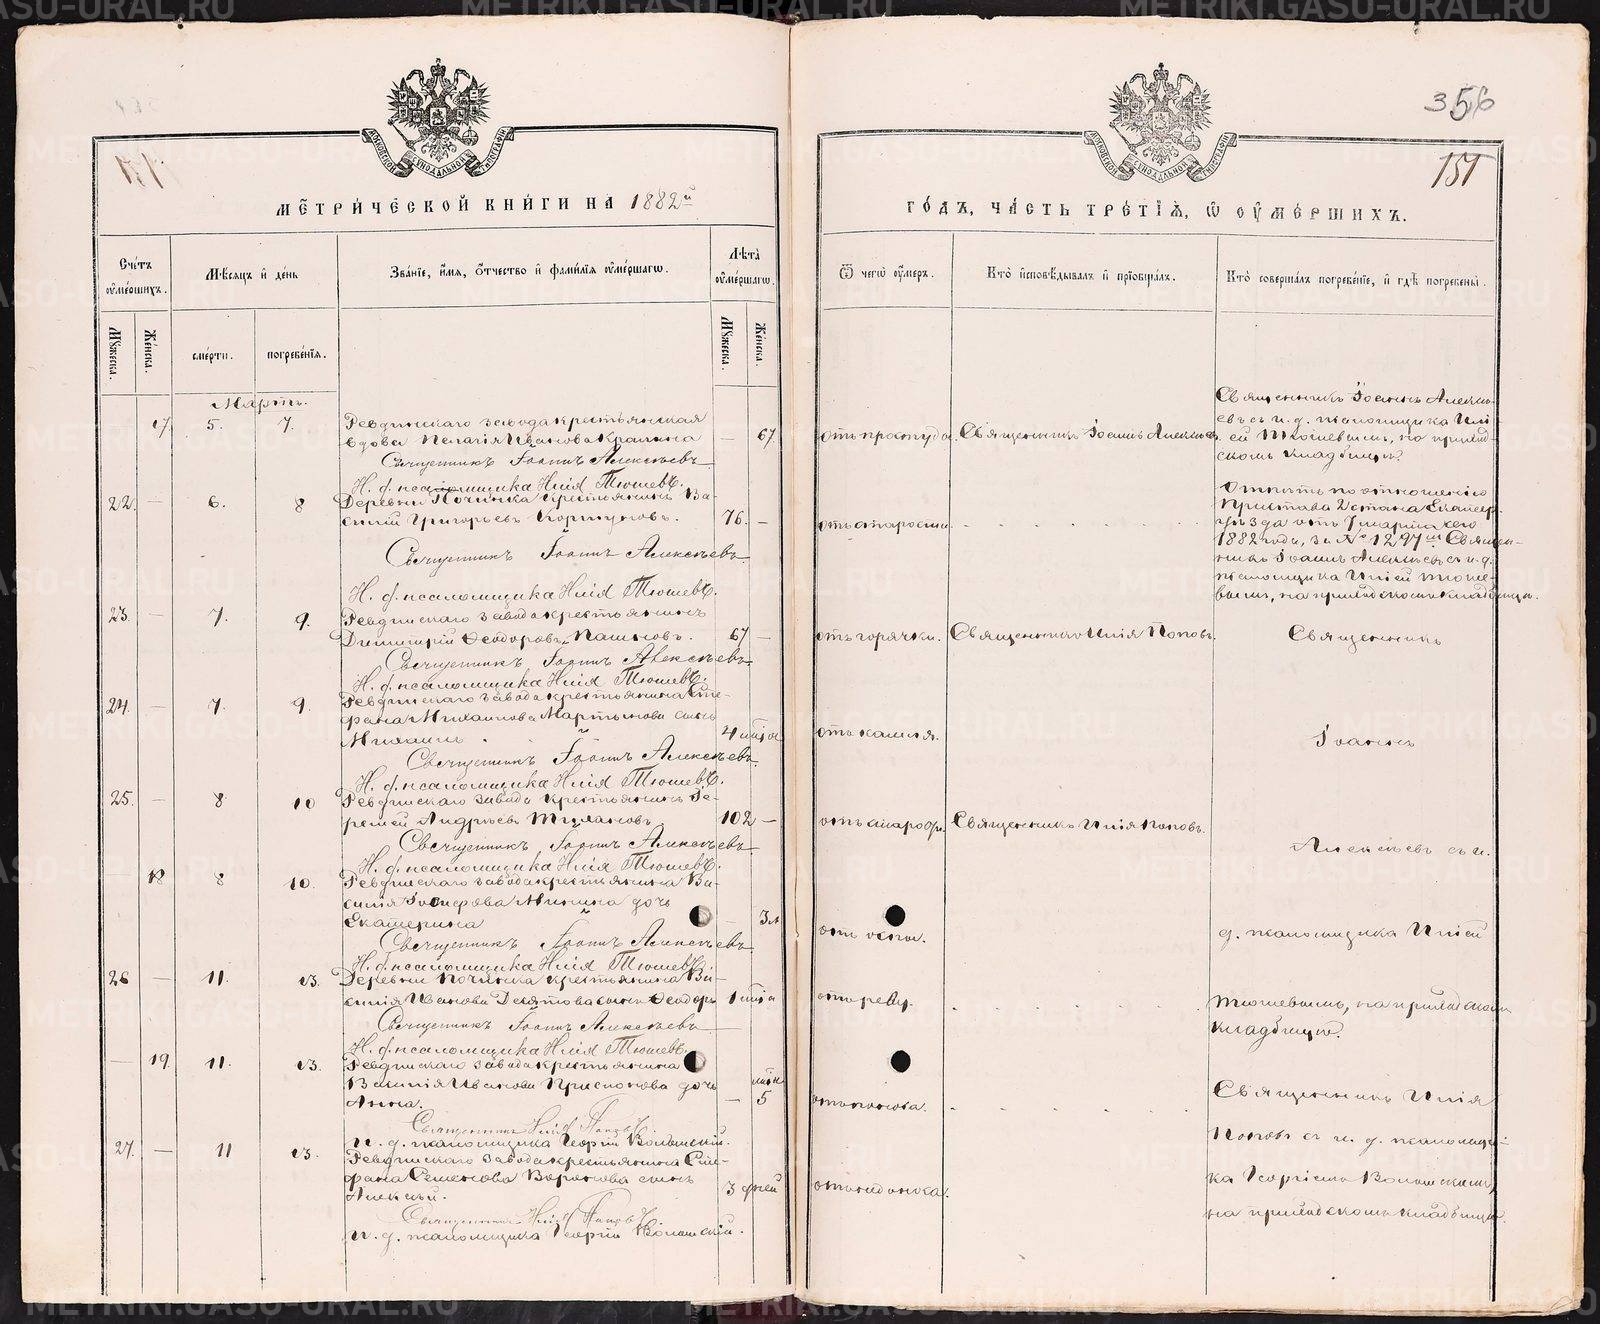 356
151
МОСКОВСКОЙ СѴНОДАЛЬНОЙ ТИПОГРАФІИ
МЕТРИЧЕСКОЙ КНИГИ НА 1882й
Счетъ оумершихъ.
Мѣсяцъ и день
Званіе, имя, отчество и фамилія оумершагѡ.
Лѣта оумершагѡ.
Мꙋжеска.
Женска.
смерти.
погребенія.
Мꙋжеска.
Женска.
Мартъ.
17 5. 7. Ревдинскаго завода крестьянская
вдова Пелагія Иванова — 67
Священникъ Іоаннъ Алексѣевъ
И. д. псаломщика Илія Тюшевъ.
22. — 6. 8 Деревни Починка крестьянинъ Ва-
силій Григорьевъ Коршуновъ. 76. —
Священникъ Іоаннъ Алексѣевъ
И. д. псаломщика Илія Тюшевъ.
23. — 7. 9. Ревдинскаго завода крестьянинъ
Димитрій Ѳеодоровъ Пашковъ. 67 —
Священникъ Іоаннъ Алексѣевъ
И. д. псаломщика Илія Тюшевъ.
24. — 7. 9. Ревдинскаго завода крестьянина Сте-
фана Михаилова Мартынова сынъ
Михаилъ 4
Священникъ Іоаннъ Алексѣевъ.
И. д. псаломщика Илія Тюшевъ.
25. — 8 10 Ревдинскаго завода крестьянинъ Іе-
ремей Андреевъ 102 —
Священникъ Іоаннъ Алексѣевъ
И. д. псаломщика Илія Тюшевъ.
— 18 8 10. Ревдинскаго завода крестьянина Ва-
силія Іосифова Минина дочь
Екатерина — 3
Священникъ Іоаннъ Алексѣевъ
И. д. псаломщика Илія Тюшевъ.
26 — 11. 13. Деревни Починка крестьянина Ва-
силія Иванова Десятова сынъ Ѳеодоръ 1
Священникъ Іоаннъ Алексѣевъ
И. д. псаломщика Илія Тюшевъ.
— 19. 11. 13. Ревдинскаго завода крестьянина
Василія Иванова дочь
Анна. — 5
Священникъ Илія Поповъ.
И. д. псаломщика Георгій
27. — 11 13. Ревдинскаго завода крестьянина Сте-
фана Семенова сынъ
Алексѣй. 3 дней
Священникъ Илія Поповъ.
И. д. псаломщика Георгій
МОСКОВСКОЙ СѴНОДАЛЬНОЙ ТИПОГРАФІИ
ГОДЪ, ЧАСТЬ ТРЕТІЯ, Ѡ ОУМЕРШИХЪ.
Ѿ чегѡ оумеръ.
Кто исповѣдывалъ и пріобщалъ.
Кто совершалъ погребеніе, и гдѣ погребены.
Священникъ Іоаннъ Алексѣ-
евъ съ и. д. псаломщика Илі-
отъ простуды Священникъ Іоаннъ Алексѣевъ ей Тюшевымъ, на приход-
скомъ кладбищѣ.
Отпѣтъ по отношенію
Пристава
отъ старости
1882 года, за № 1297м Священ-
никъ Іоаннъ Алексѣевъ съ и. д.
псаломщика Иліей Тюше-
вымъ, на приходскомъ кладбищѣ.
отъ горячки. Священникъ Илія Поповъ. Священникъ
отъ кашля. Іоаннъ
отъ старости. Священникъ Илія Поповъ.
Алексѣевъ съ и.
отъ оспы. д. псаломщика Иліей
Тюшевымъ, на приходскомъ
кладбищѣ.
Священникъ Илія
отъ поноса.
Поповъ съ и. д. псаломщи-
ка Георгіемъ
на приходскомъ кладбищѣ.
METRIKI.GASO-URAL.RU